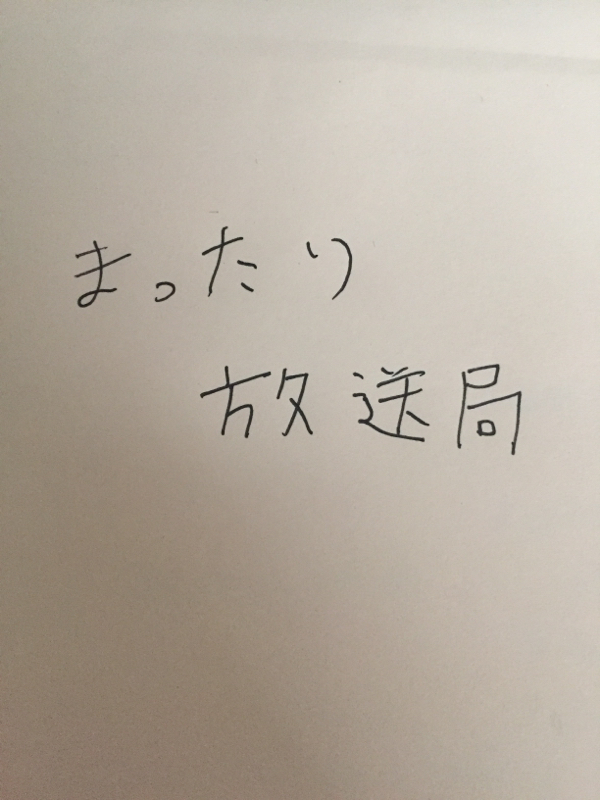 まったり
放送局